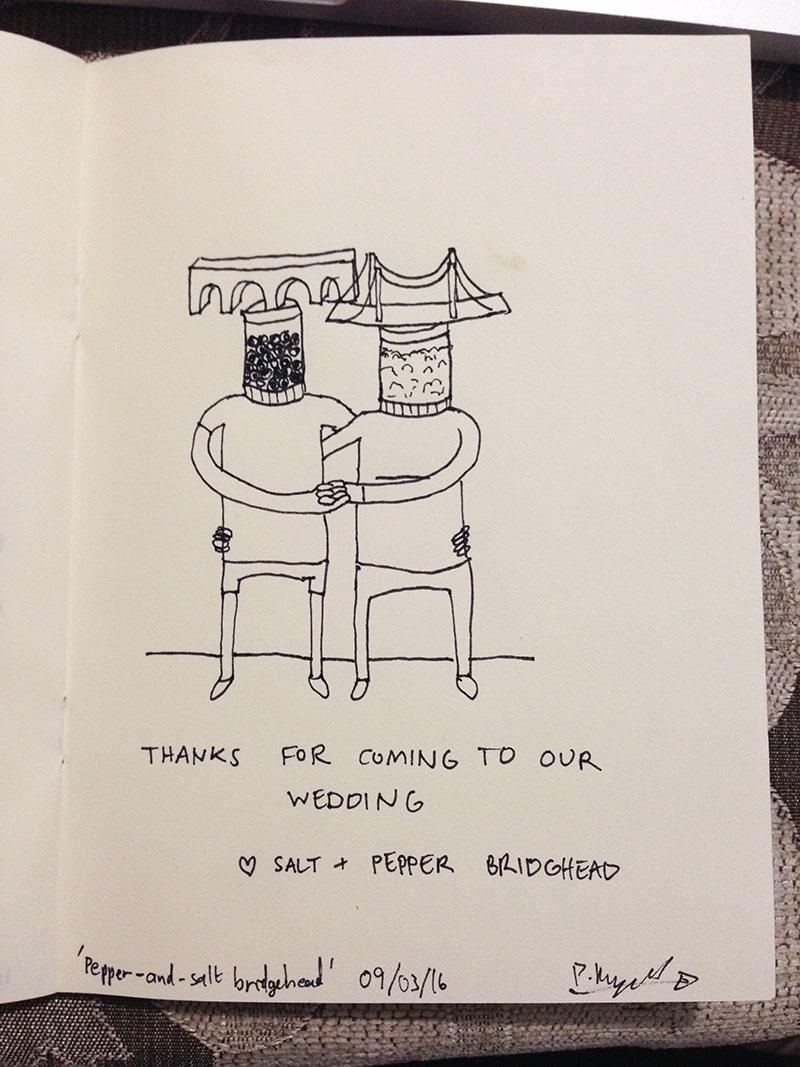 THANKS FOR COMING TO OUR
WEDDING
♡ SALT + PEPPER BRIDGHEAD
'Pepper-and-salt bridgehead' 09/03/16